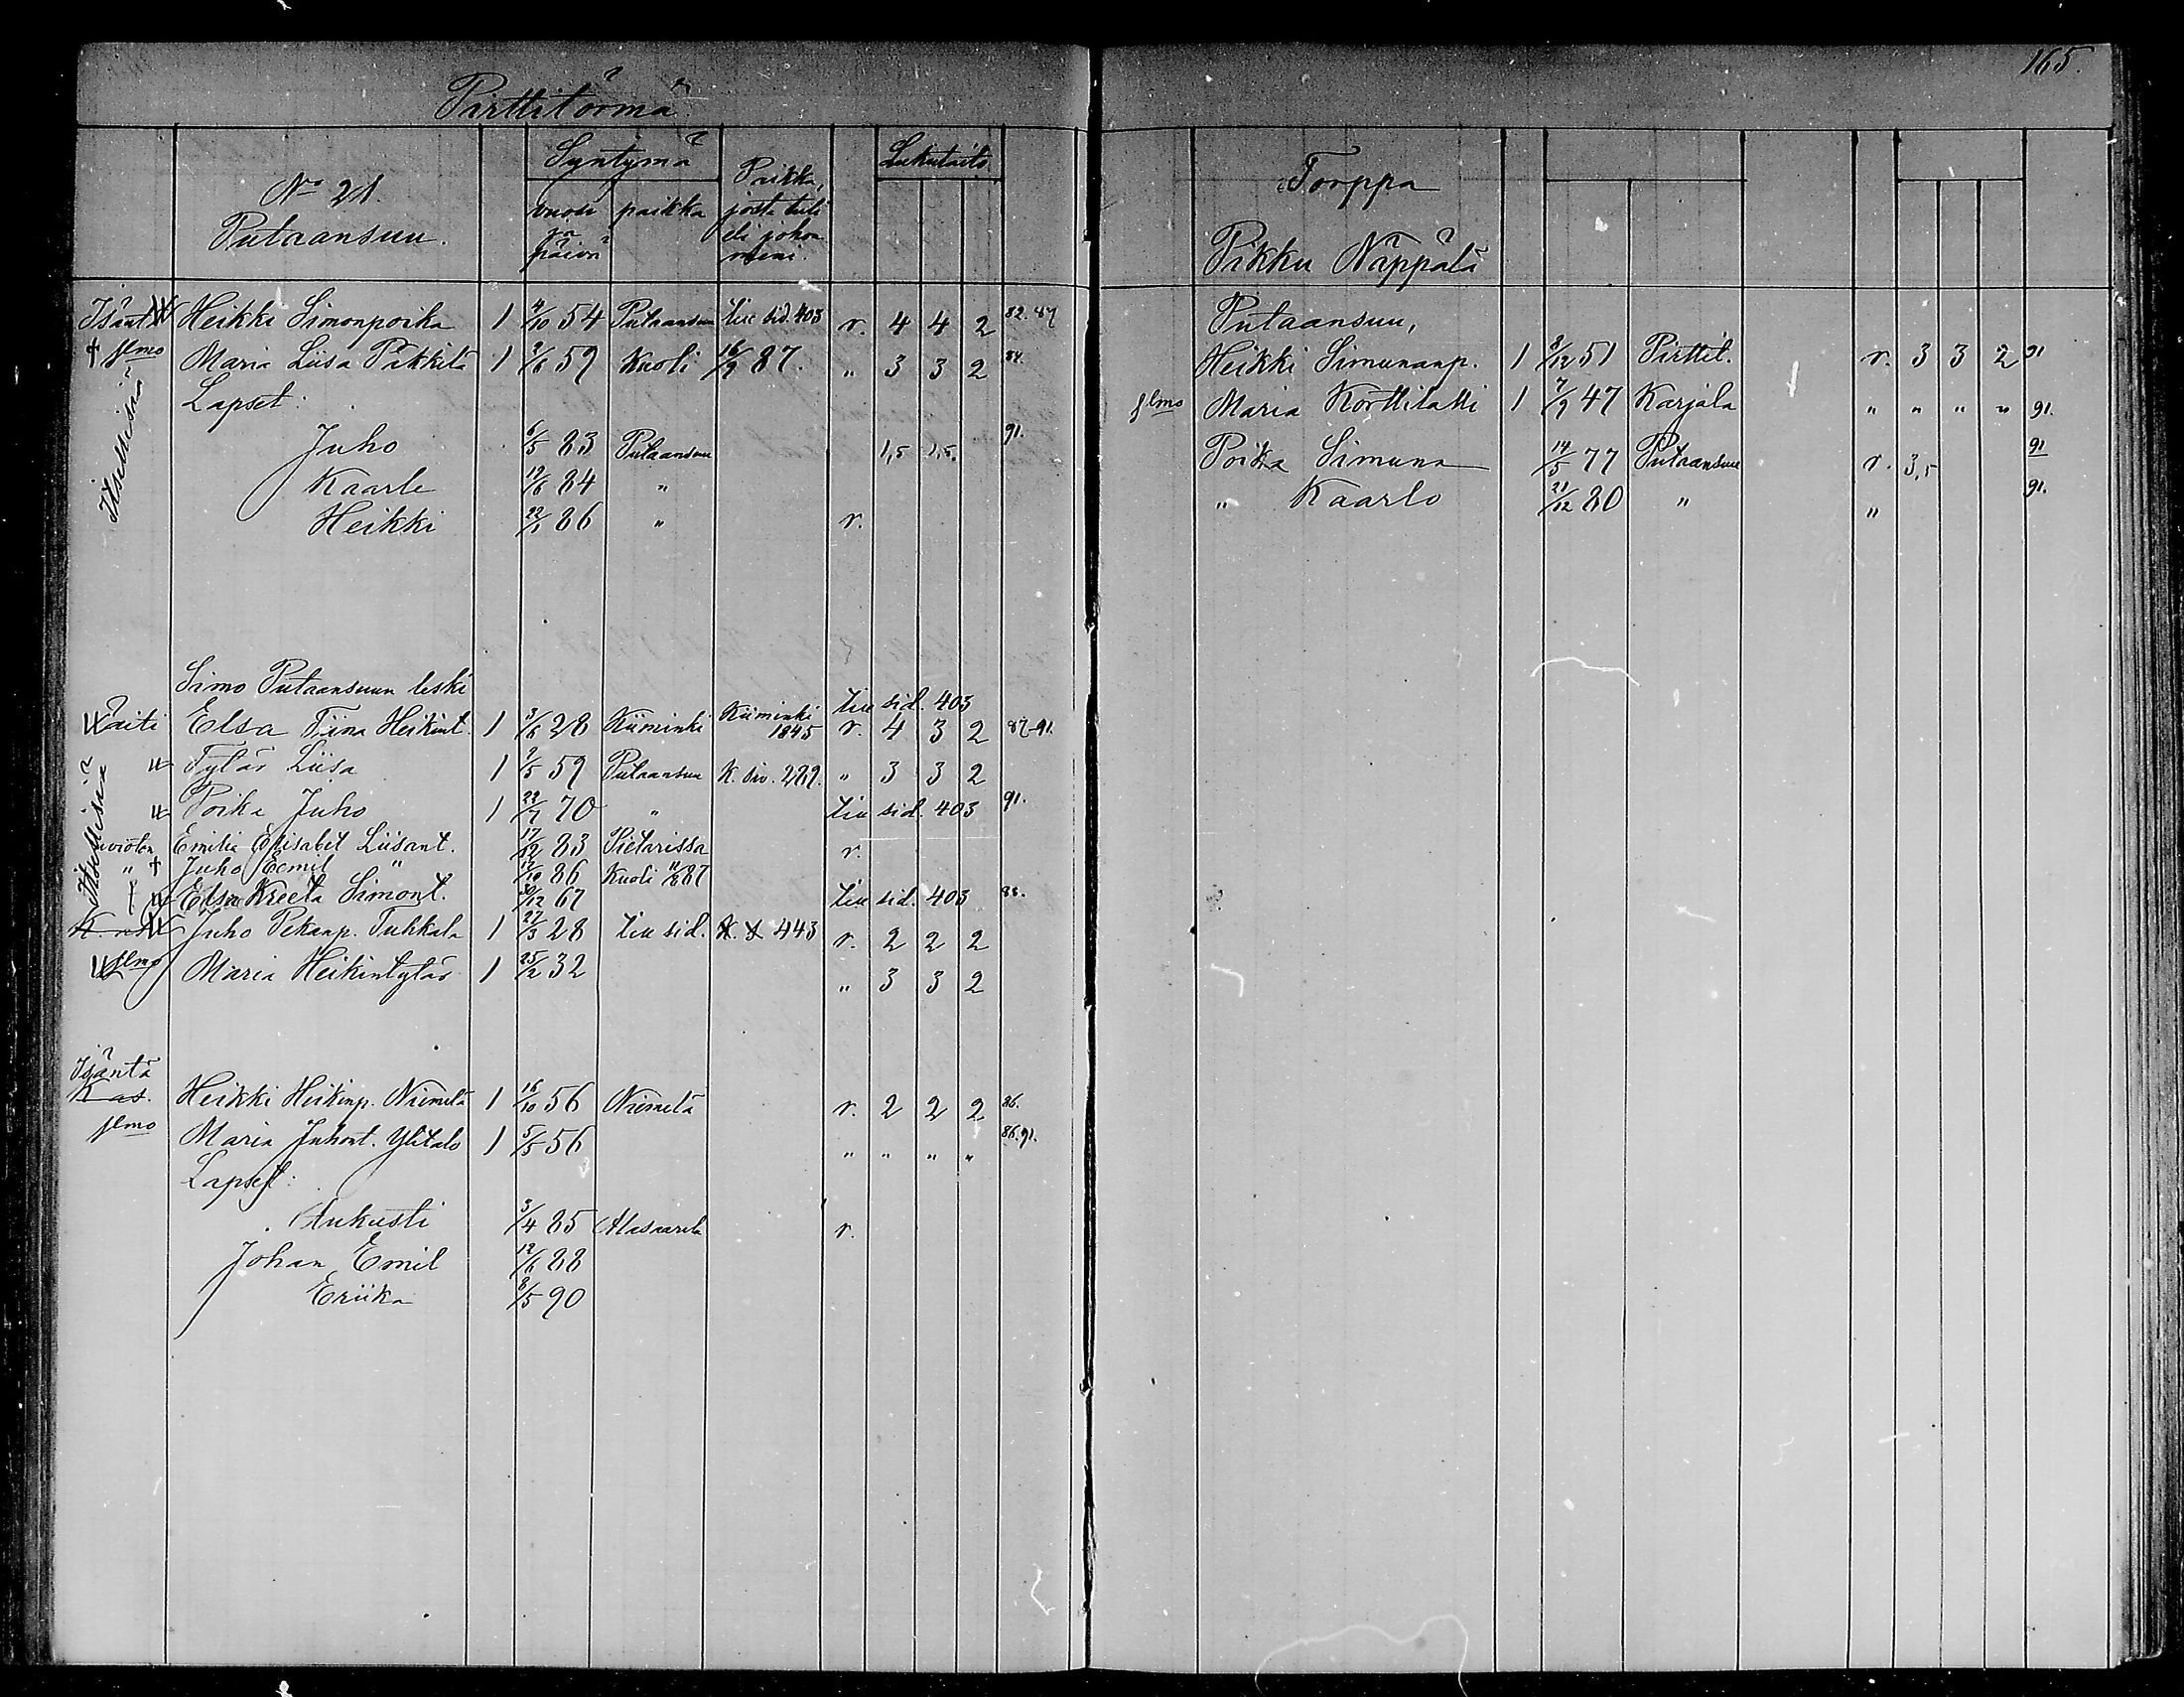 165.
Pirttitörmä
No 21.
Putaansuu.
Syntymä
vuosi ja päivä
paikka
Paikka, josta tuli eli johon meni.
Lukutaito
Isäntä Heikki Simonpoika 1 4/10 54 Putaansuu Liu sid. 403 r. 4 4 2 82. 87
† Maria Liisa Päkkilä 1 2/6 59 Kuoli 16/9 87. " 3 3 2 84.
Lapset:
Juho 6/5 83 Putaansuu 1,5 1,5. 91.
Kaarle 12/6 84 "
Heikki 22/1 86 " r.
Itsellisiä
Simo Putaansuun leski Liu sid. 403
Äiti Elsa Tiina Heikint. 1 3/6 28 Kiiminki Kiiminki 1845 r. 4 3 2 87-91.
Tytär Liisa 1 2/5 59 Putaansuu K. siv. 289. " 3 3 2
Poika Juho 1 22/7 70 " Liu sid. 403 91.
Itsellisiä
avioton Emilia Elisabet Liisant. 17/12 83 Pietarissa r.
" † Juho Eemil " 12/10 86 Kuoli 11/8 87
Elsa Kreeta Simont. 30/12 67 Liu sid. 403 88.
Juho Pekanp. Tuhkala 1 27/3 28 Liu sid. 443 r. 2 2 2
Maria Heikintytär 1 25/2 32 " 3 3 2
Isäntä
K as. Heikki Heikinp. Niemelä 1 16/10 56 Niemelä r. 2 2 2 86.
Maria Juhont. Ylitalo 1 5/5 56 " " " " 86. 91.
Lapset:
Aukusti 3/4 85 Alasaarela r.
Johan Emil 12/6 88
Eriika 8/5 90
Torppa
Pikku Näppälä
Putaansuu,
Heikki Simunanp. 1 8/12 51 Pirttit. r. 3 3 2 91
Maria Korttilatti 1 7/9 47 Karjala " " " " 91.
Poika Simuna 14/5 77 Putaansuu r. 3,5 91
" Kaarlo 21/12 80 " " 91.